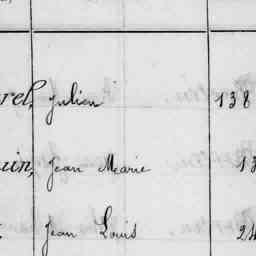 rel, Julien 138
uin, Jean Marie 13
Jean Louis 24